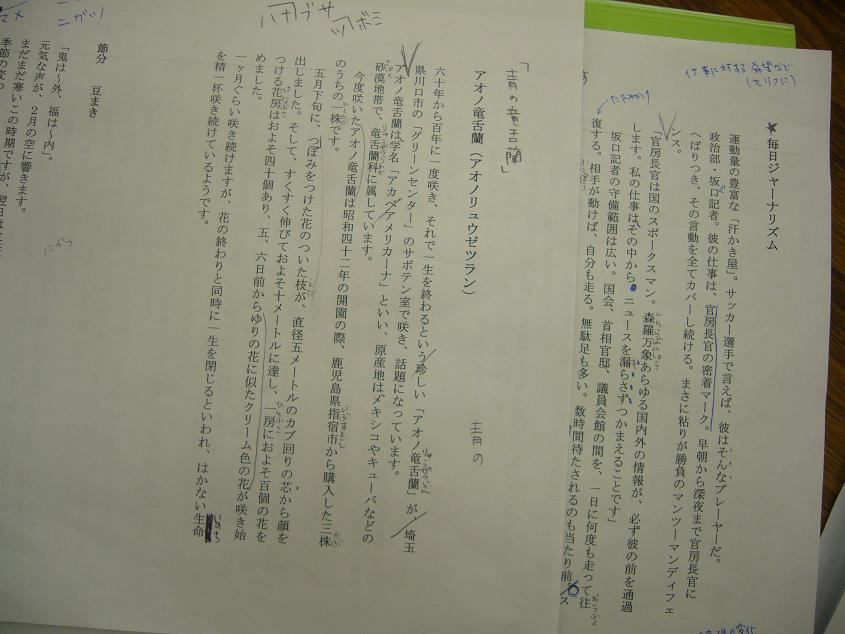 仕事に対する希望など
(セリフに)
★毎日ジャーナリズム
運動量の豊富な「汗かき屋」。サッカー選手で言えば、彼はそんなプレーヤーだ。
政治部・坂口記者。彼の仕事は、官房長官の密着マーク。早朝から深夜まで官房長官に
へばりつき、その言動を全てカバーし続ける。まさに粘りが勝負のマンツーマンディフェ
ンス。
「官房長官は国のスポークスマン。森羅万象あらゆる国内外の情報が、必ず彼の前を通過
します。私の仕事はその中から、ニュースを漏らさずつかまえることです」
坂口記者の守備範囲は広い。国会、首相官邸、議員会館の間を、一日に何度も走って往
復する。相手が動けば、自分も走る。無駄足も多い。数時間待たされるのも当たり前。ス
ハナブサ
ツボミ
「青の竜舌蘭」
青の
アオノ竜舌蘭(アオノリュウゼツラン)
六十年から百年に一度咲き、それで一生を終わるという珍しい「アオノ竜舌蘭」が、埼玉
県川口市の「グリーンセンター」のサボテン室で咲き、話題になっています。
アオノ竜舌蘭は学名「アカベアメリカーナ」といい、原産地はメキシコやキューバなどの
砂漠地帯で、竜舌蘭科に属しています。
今度咲いたアオノ竜舌蘭は昭和四十二年の開園の際、鹿児島県指宿市から購入した三株
のうちの一株です。
五月下旬に、つぼみをつけた花のついた枝が、直径五メートルのカブ回りの芯から顔を
出しました。そして、すくすく伸びておよそ十メートルに達し、一房におよそ百個の花を
つける花房はおよそ四十個あり、五、六日前からゆりの花に似たクリーム色の花が咲き始
めました。
一ヶ月ぐらい咲き続けますが、花の終わりと同時に一生を閉じるといわれ、はかない生命
を精一杯咲き続けているようです。
にがつ
マメ
ニガツ
節分 豆まき
「鬼は〜外、福は〜内」。
元気な声が、２月の空に響きます。
まだまだ寒いこの時期ですが、翌日は